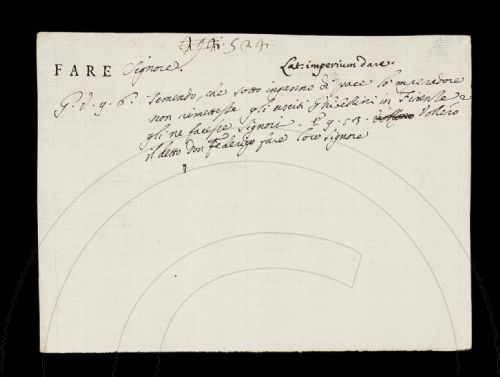 524.
FARE Signore. Lat: imperium dare.
G. V. 9. 6. Temendo, che sotto inganno di pace lo mperadore
non rimettesse gli usciti Ghibellini in Firenze e
gli ne facesse signori. E 9. 53. Volieno
il detto Don Federigo fare loro signore